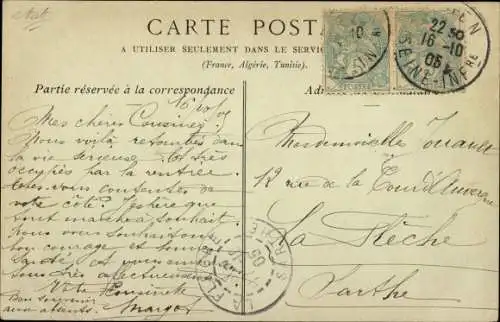 CARTE POSTA
A UTILISER SEULEMENT DANS LE SERVIC
(France, Algérie, Tunisie).
Partie réservée à la correspondance
Ad
16 10/05
Mes chères Cousines,
Nous voilà retombées dans
la vie sérieuse. Et très
occupées par la rentrée.
Etes-vous contentes de
votre côté? J'espère que
tout marche à souhait.
Nous vous souhaitons
bon courage et bonne
santé et vous
très affectueusement
Votre
Bon souvenir
aux
Margot
Mademoiselle Jouanet
12 rue de la Tour d'Auvergne
La Flèche
Sarthe
22 30
16 -10
05
SEINE-INFRE
10
SARTHE
05